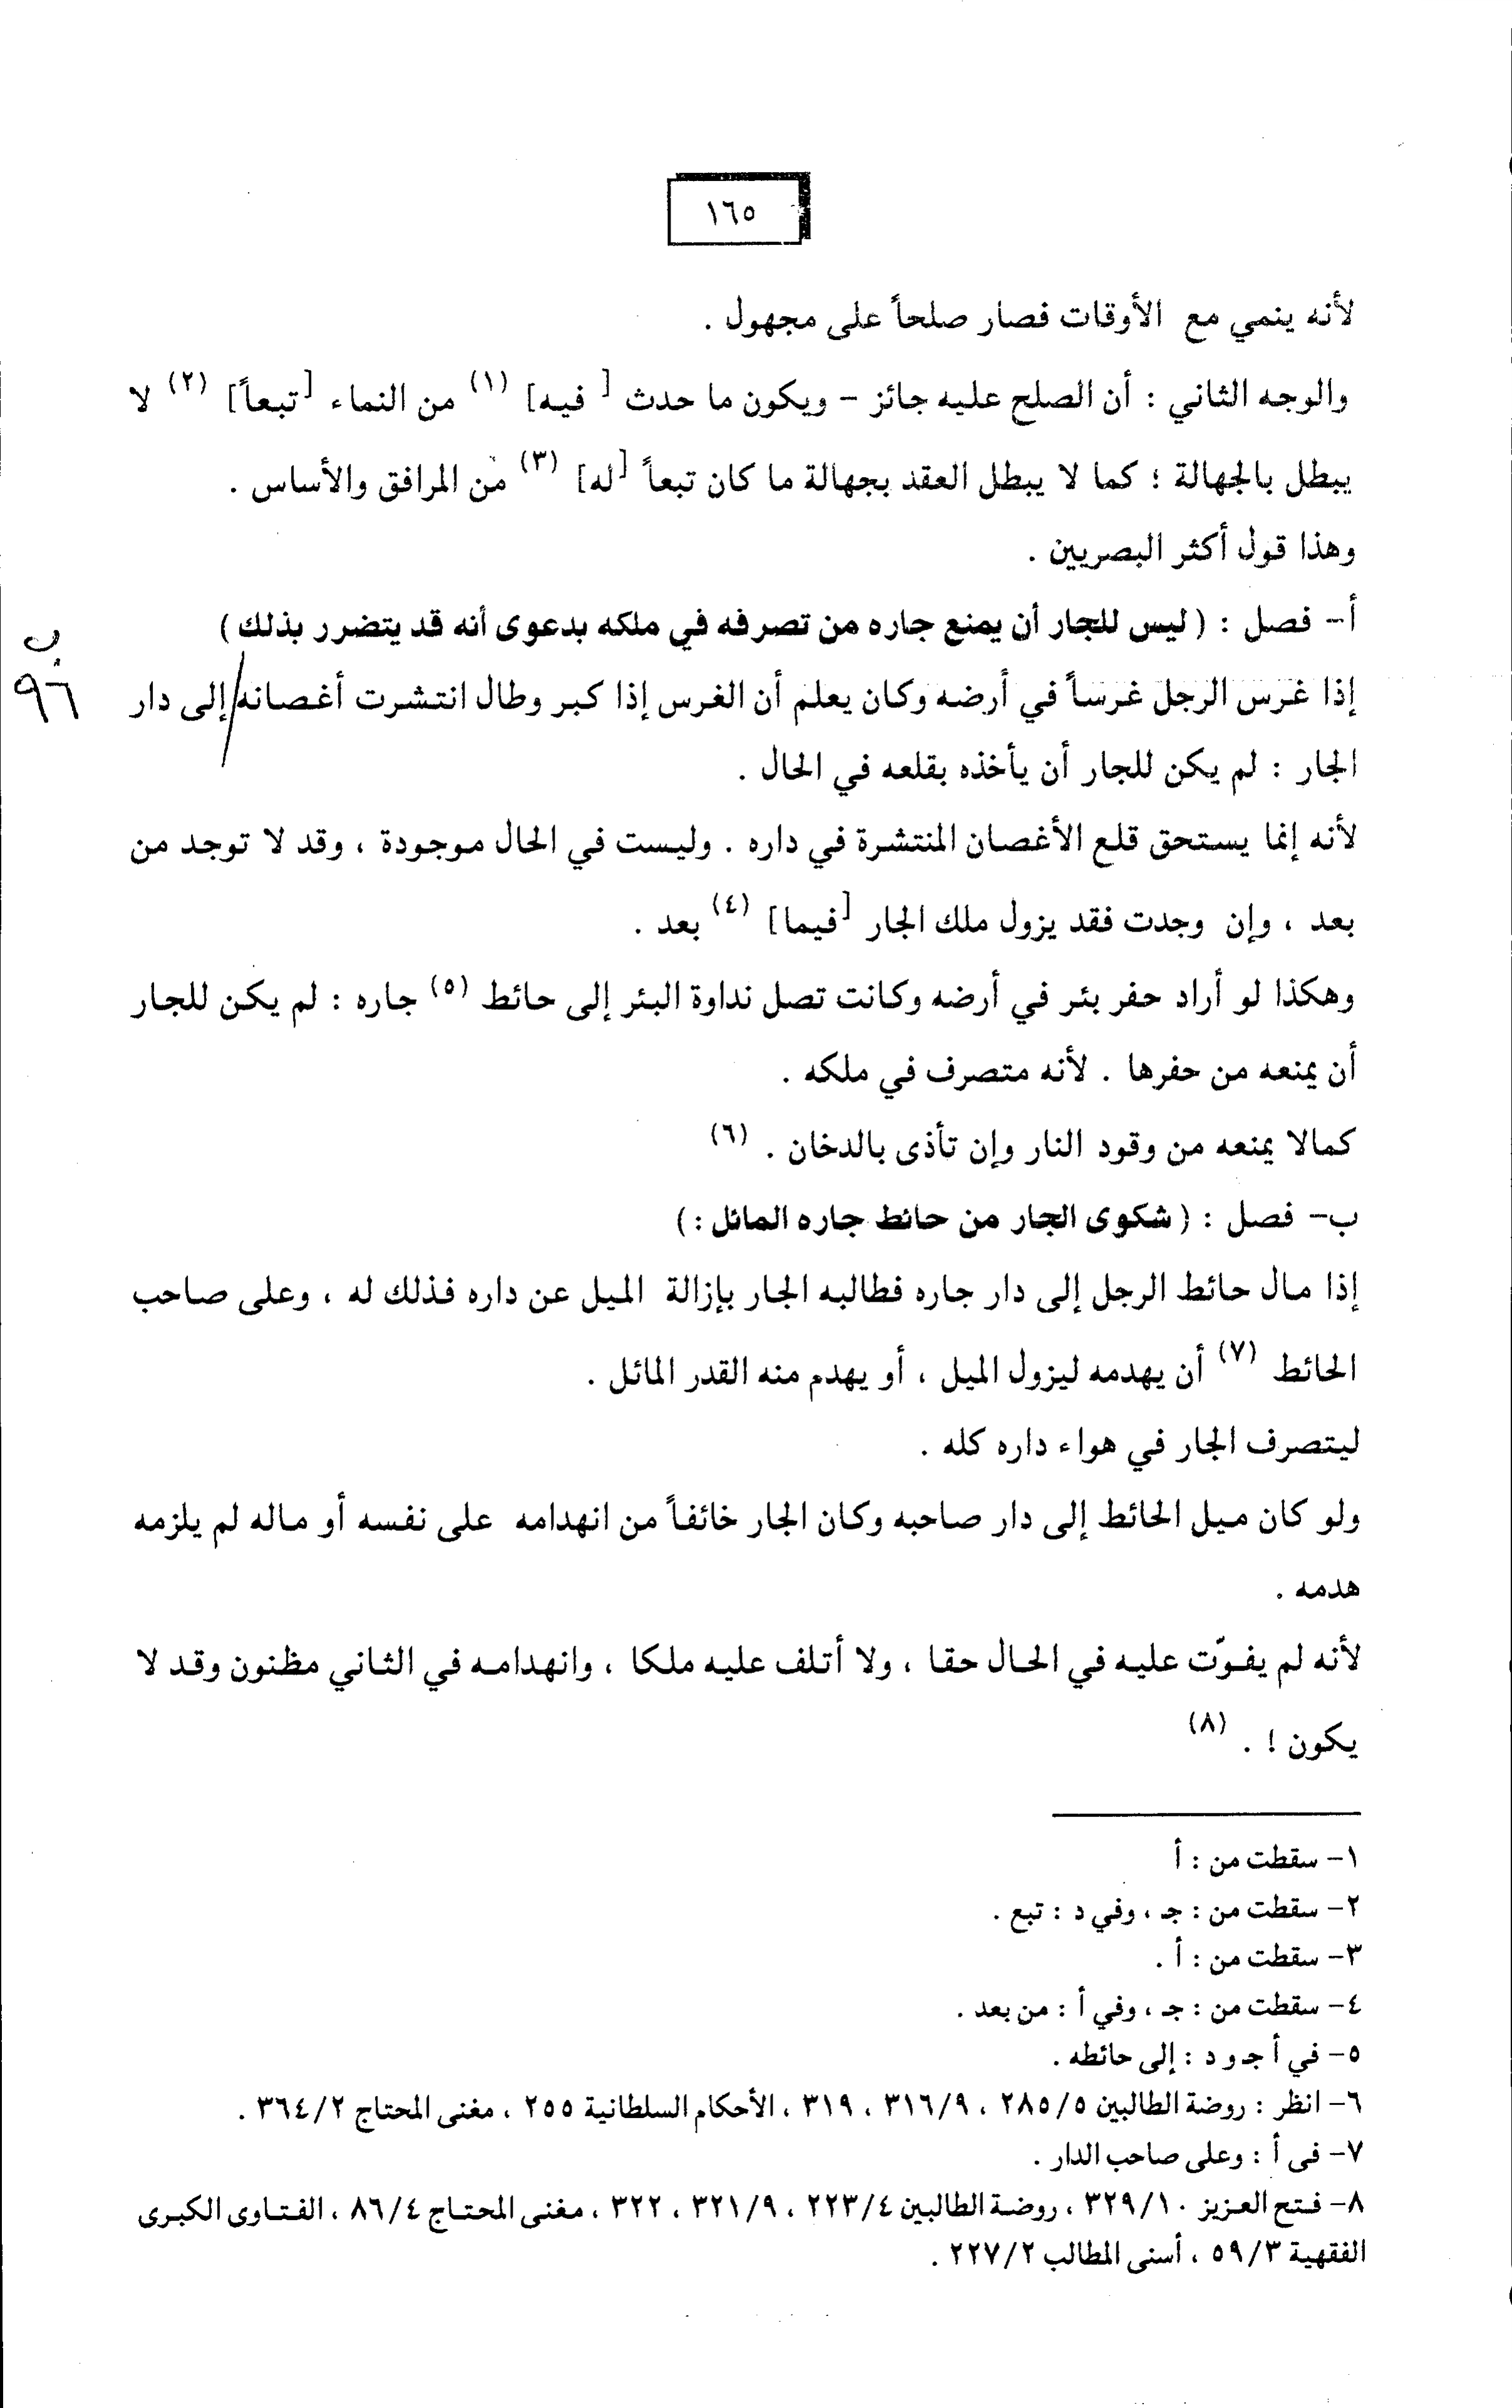 ١٦٥
لأنه ينمي مع الأوقات فصار صلحاً على مجهول .
والوجه الثاني : أن الصلح عليه جائز - ويكون ما حدث [ فيه] (١) من النماء [تبعاً] (٢) لا
يبطل بالجهالة ؛ كما لا يبطل العقد بجهالة ما كان تبعاً [له] (٣) من المرافق والأساس .
وهذا قول أكثر البصريين .
أ- فصل : ( ليس للجار أن يمنع جاره من تصرفه في ملكه بدعوى أنه قد يتضرر بذلك )
ب
إذا غرس الرجل غرساً في أرضه وكان يعلم أن الغرس إذا كبر وطال انتشرت أغصانه/إلى دار
٩٦
الجار : لم يكن للجار أن يأخذه بقلعه في الحال .
لأنه إنما يستحق قلع الأغصان المنتشرة في داره . وليست في الحال موجودة ، وقد لا توجد من
بعد ، وإن وجدت فقد يزول ملك الجار [فيما] (٤) بعد .
وهكذا لو أراد حفر بئر في أرضه وكانت تصل نداوة البئر إلى حائط (٥) جاره : لم يكن للجار
أن يمنعه من حفرها . لأنه متصرف في ملكه .
كمالا يمنعه من وقود النار وإن تأذى بالدخان . (٦)
ب- فصل : ( شكوى الجار من حائط جاره المائل : )
إذا مال حائط الرجل إلى دار جاره فطالبه الجار بإزالة الميل عن داره فذلك له ، وعلى صاحب
الحائط (٧) أن يهدمه ليزول الميل ، أو يهدم منه القدر المائل .
ليتصرف الجار في هواء داره كله .
ولو كان ميل الحائط إلى دار صاحبه وكان الجار خائفاً من انهدامه على نفسه أو ماله لم يلزمه
هدمه .
لأنه لم يفوّت عليه في الحال حقا ، ولا أتلف عليه ملكا ، وانهدامه في الثاني مظنون وقد لا
يكون ! . (٨)
١- سقطت من : أ
٢- سقطت من : جـ ، وفي د : تبع .
٣- سقطت من : أ .
٤- سقطت من : جـ ، وفي أ : من بعد .
٥- في أ جـ و د : إلى حائطه .
٦- انظر : روضة الطالبين ٢٨٥/٥ ، ٣١٦/٩ ، ٣١٩ ، الأحكام السلطانية ٢٥٥ ، مغنى المحتاج ٣٦٤/٢ .
٧- فى أ : وعلى صاحب الدار .
٨- فتح العزيز ٣٢٩/١٠ ، روضة الطالبين ٢٢٣/٤ ، ٣٢١/٩ ، ٣٢٢ ، مغنى المحتاج ٨٦/٤ ، الفتاوى الكبرى
الفقهية ٥٩/٣ ، أسنى المطالب ٢٢٧/٢ .